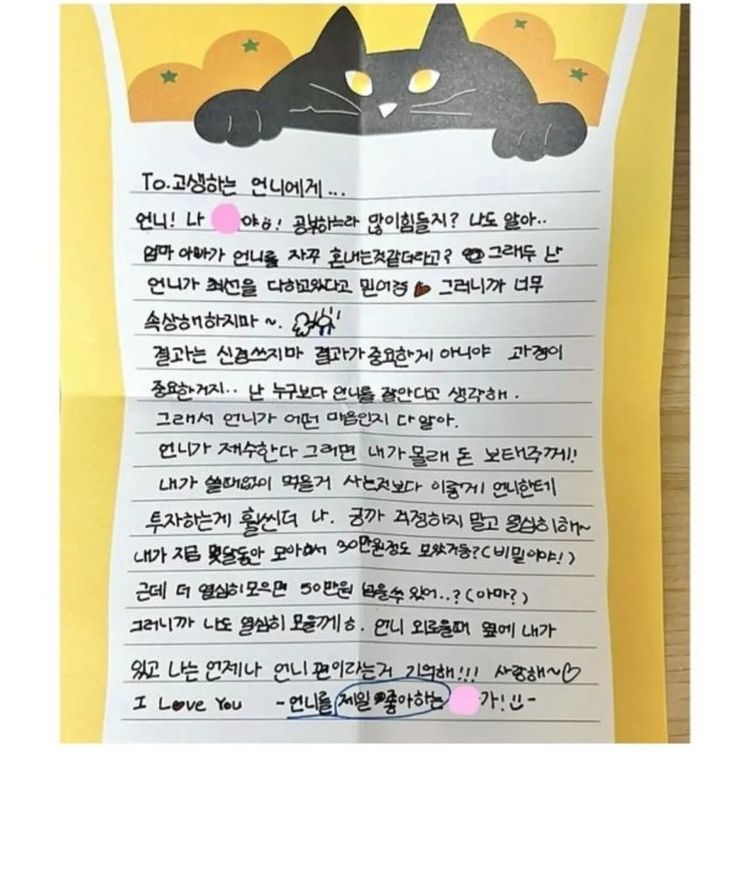 To.고생하는 언니에게...
언니! 나 야ㅎ! 공부하느라 많이힘들지? 나도 알아..
엄마 아빠가 언니를 자꾸 혼내는것같더라고? 그래두 난
언니가 최선을 다하고있다고 믿어정 그러니까 너무
속상해하지마~.
결과는 신경쓰지마 결과가중요한게 아니야 과정이
중요한거지.. 난 누구보다 언니를 잘안다고 생각해.
그래서 언니가 어떤 마음인지 다알아.
언니가 재수한다 그러면 내가몰래 돈 보태주께!!
내가 쓸때없이 먹을거 사는것보다 이렇게 언니한테
투자하는게 훨씬더 나. 긍까 걱정하지 말고 열심히해~
내가 지금 몇달동안 모아놔서 30만원정도 모았거등?(비밀이야!)
근데 더 열심히모으면 50만원 넘을수 있어..?(아마?)
그러니까 나도 열심히 모을께ㅎ. 언니 외로울때 옆에 내가
있고 나는 언제나 언니 편이라는거 기억해!!! 사랑해~♡
I Love You -언니를 제일 좋아하는 가!-